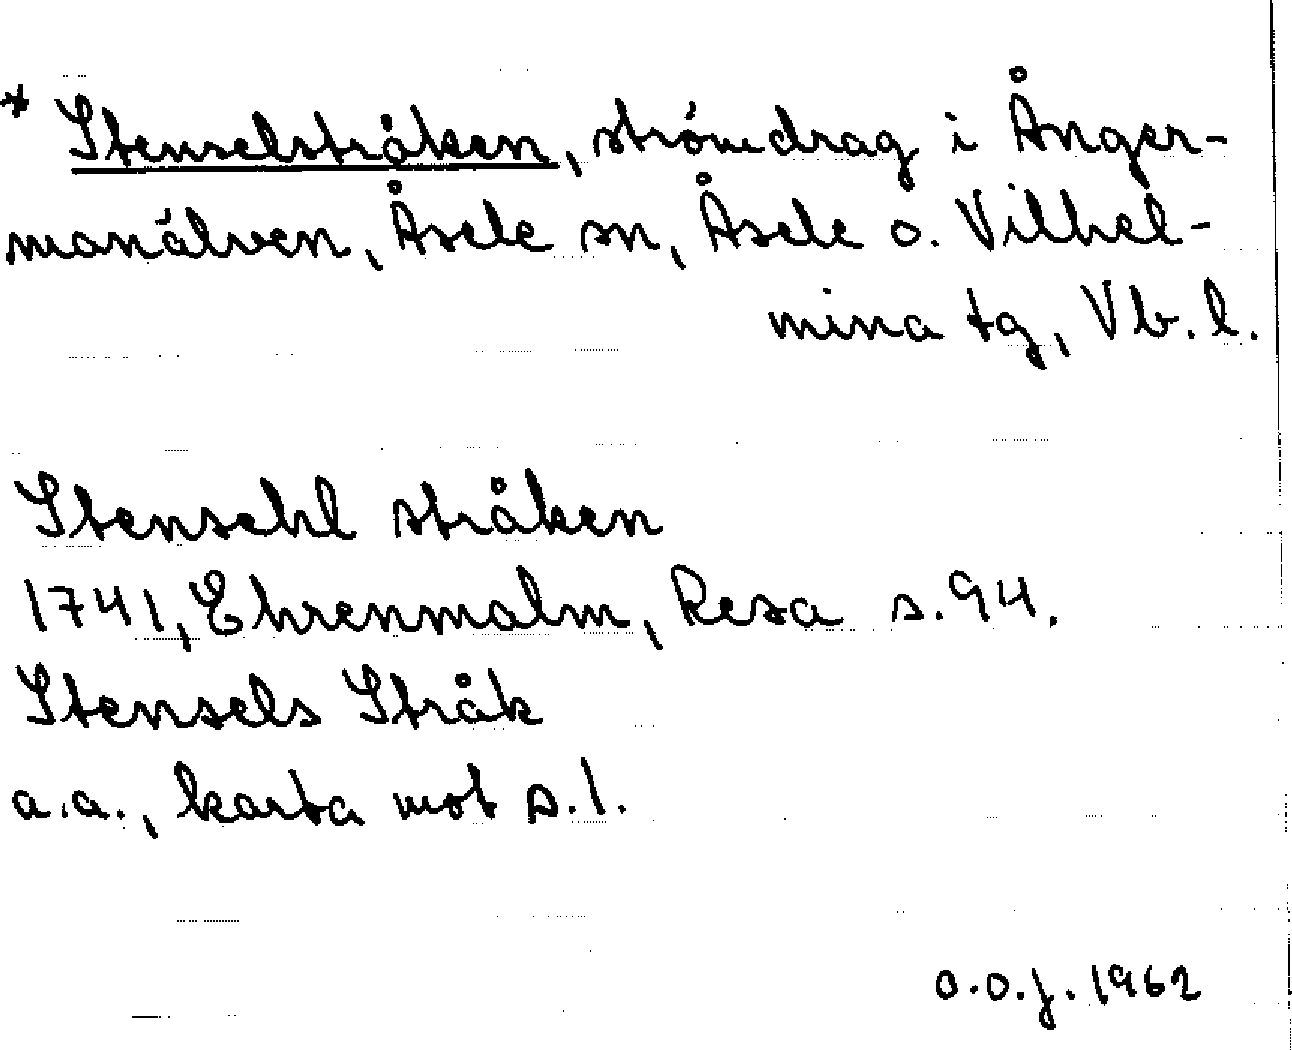 * Stenselstråken, strömdrag i Ånger-
manälven, Åsele sn, Åsele o. Vilhel-
mina tg, Vb. l.
Stensehl stråken
1741, Ehrenmalm, Resa s. 94.
Stensels Stråk
a.a., karta mot s. 1.
O.O.j. 1962